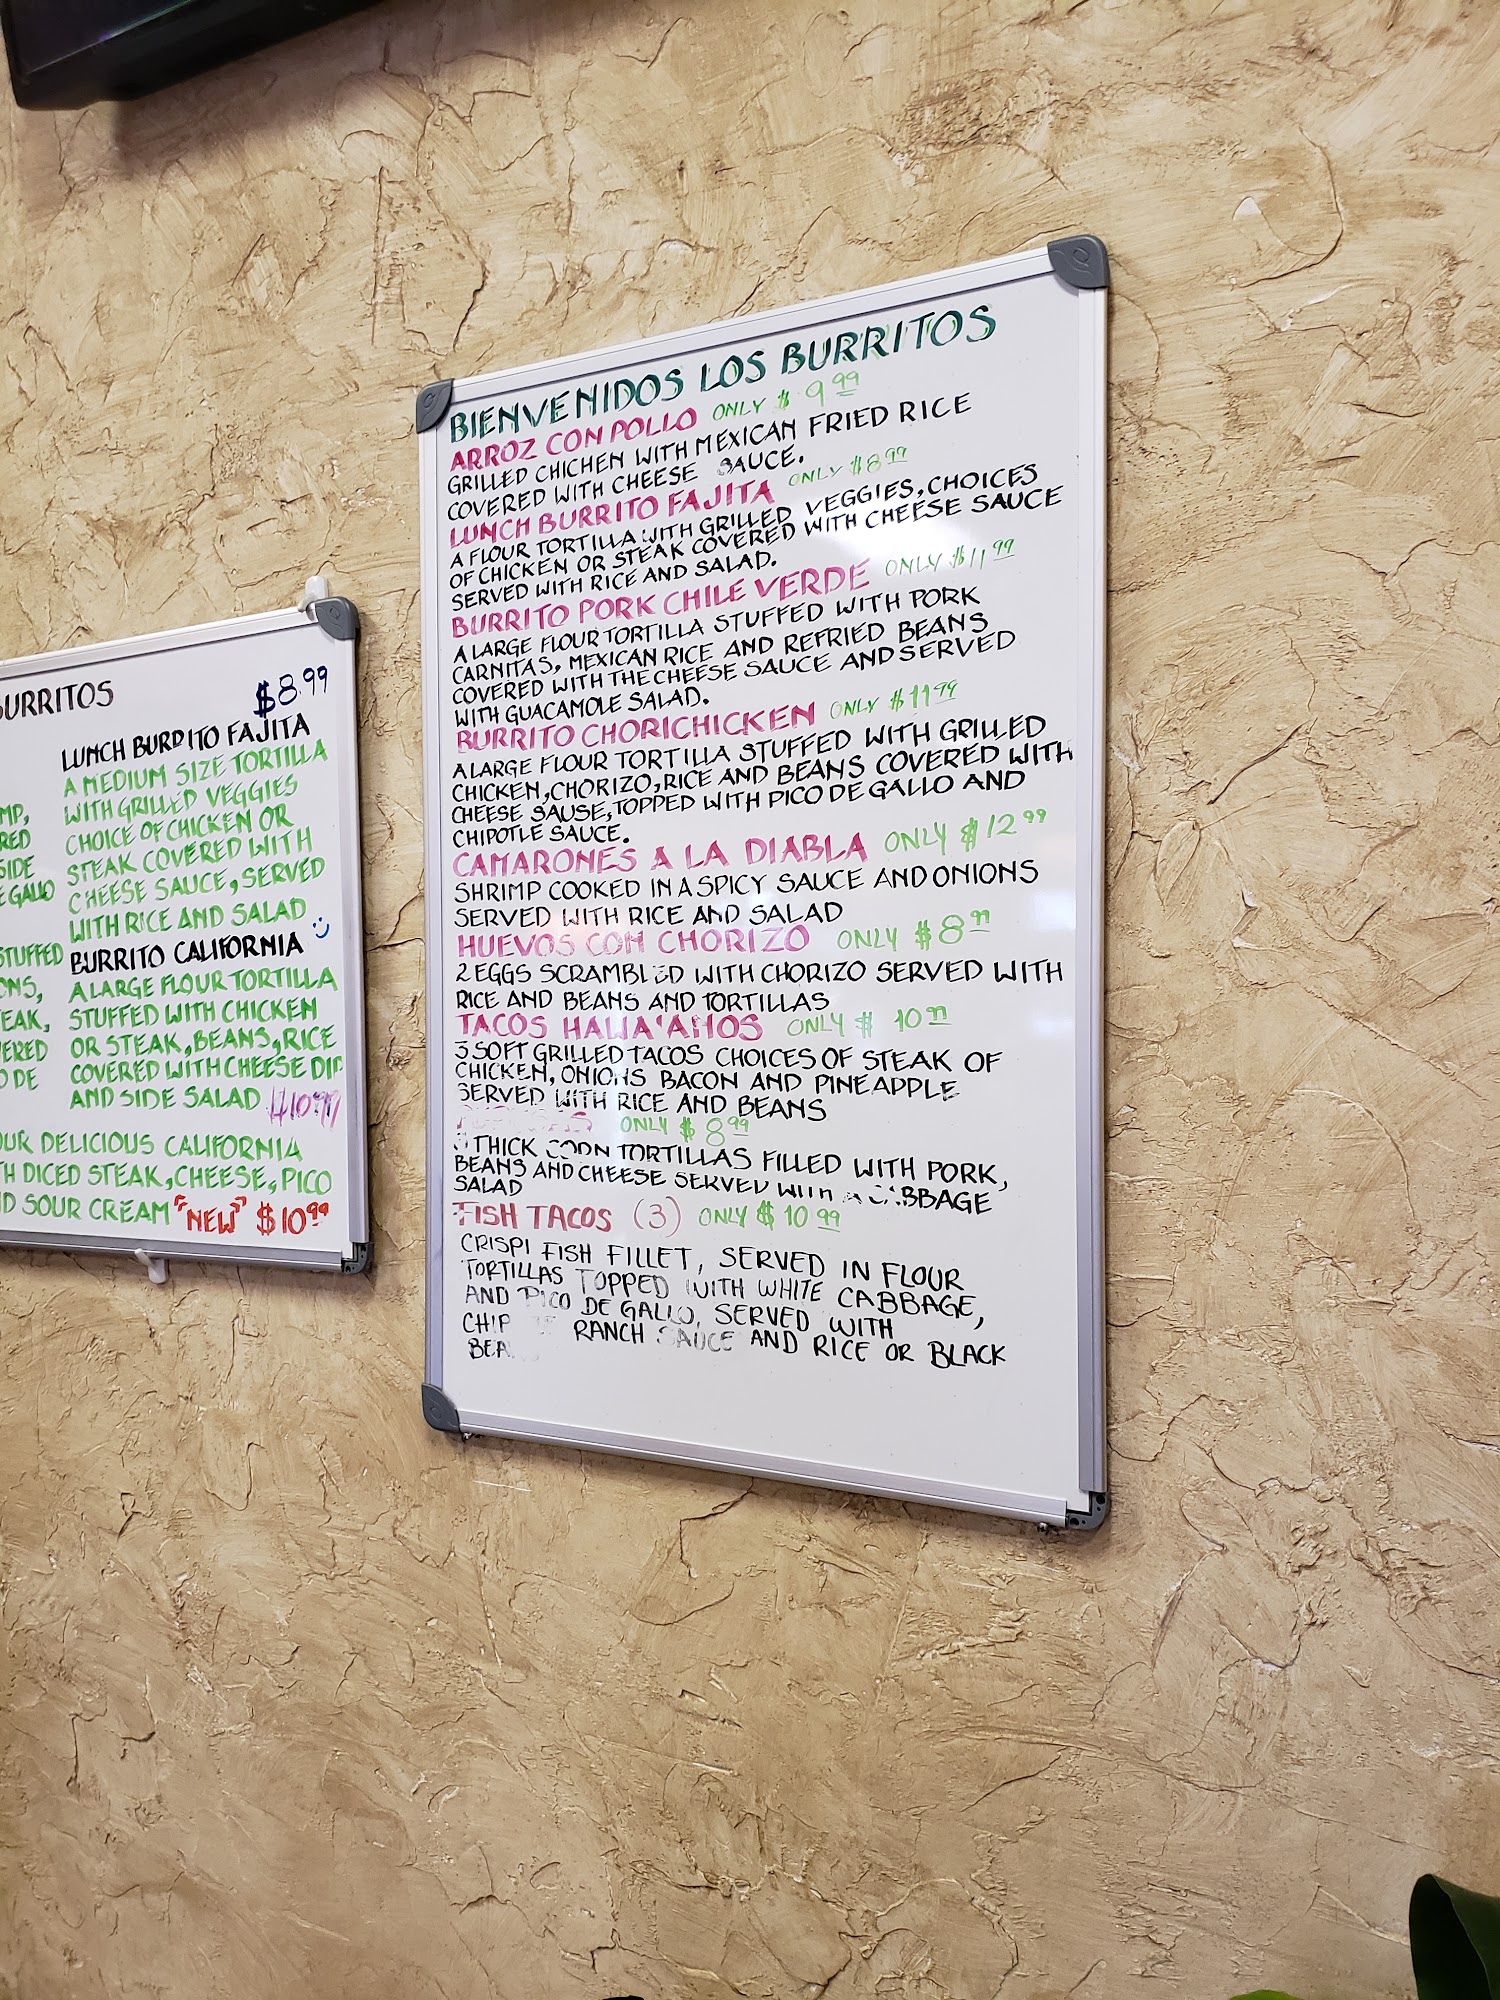 BURRITOS
$8.99
LUNCH BURRITO FAJITA
A MEDIUM SIZE TORTILLA
WITH GRILLED VEGGIES
CHOICE OF CHICKEN OR
STEAK COVERED WITH
CHEESE SAUCE, SERVED
WITH RICE AND SALAD
BURRITO CALIFORNIA
A LARGE FLOUR TORTILLA
STUFFED WITH CHICKEN
OR STEAK, BEANS, RICE
COVERED WITH CHEESE DIP
AND SIDE SALAD $10.99
SIDE
GALLO
STUFFED
DE
DELICIOUS CALIFORNIA
DICED STEAK, CHEESE, PICO
SOUR CREAM "NEW" $10.99
BIENVENIDOS LOS BURRITOS
ARROZ CON POLLO ONLY $9.99
GRILLED CHICHEN WITH MEXICAN FRIED RICE
COVERED WITH CHEESE SAUCE.
LUNCH BURRITO FAJITA ONLY $8.99
A FLOUR TORTILLA WITH GRILLED VEGGIES, CHOICES
OF CHICKEN OR STEAK COVERED WITH CHEESE SAUCE
SERVED WITH RICE AND SALAD.
BURRITO PORK CHILE VERDE ONLY $11.99
A LARGE FLOUR TORTILLA STUFFED WITH PORK
CARNITAS, MEXICAN RICE AND REFRIED BEANS
COVERED WITH THE CHEESE SAUCE AND SERVED
WITH GUACAMOLE SALAD.
BURRITO CHORICHICKEN ONLY $11.99
A LARGE FLOUR TORTILLA STUFFED WITH GRILLED
CHICKEN, CHORIZO, RICE AND BEANS COVERED WITH
CHEESE SAUSE, TOPPED WITH PICO DE GALLO AND
CHIPOTLE SAUCE.
CAMARONES A LA DIABLA ONLY $12.99
SHRIMP COOKED IN A SPICY SAUCE AND ONIONS
SERVED WITH RICE AND SALAD
HUEVOS CON CHORIZO ONLY $8.99
2 EGGS SCRAMBLED WITH CHORIZO SERVED WITH
RICE AND BEANS AND TORTILLAS
TACOS HAWA'ANOS ONLY $10.99
3 SOFT GRILLED TACOS CHOICES OF STEAK OF
CHICKEN, ONIONS BACON AND PINEAPPLE
SERVED WITH RICE AND BEANS
ONLY $8.99
THICK CORN TORTILLAS FILLED WITH PORK,
BEANS AND CHEESE SERVED WITH A CABBAGE
SALAD
FISH TACOS (3) ONLY $10.99
CRISPI FISH FILLET, SERVED IN FLOUR
TORTILLAS TOPPED WITH WHITE CABBAGE,
AND PICO DE GALLO, SERVED WITH
RANCH SAUCE AND RICE OR BLACK